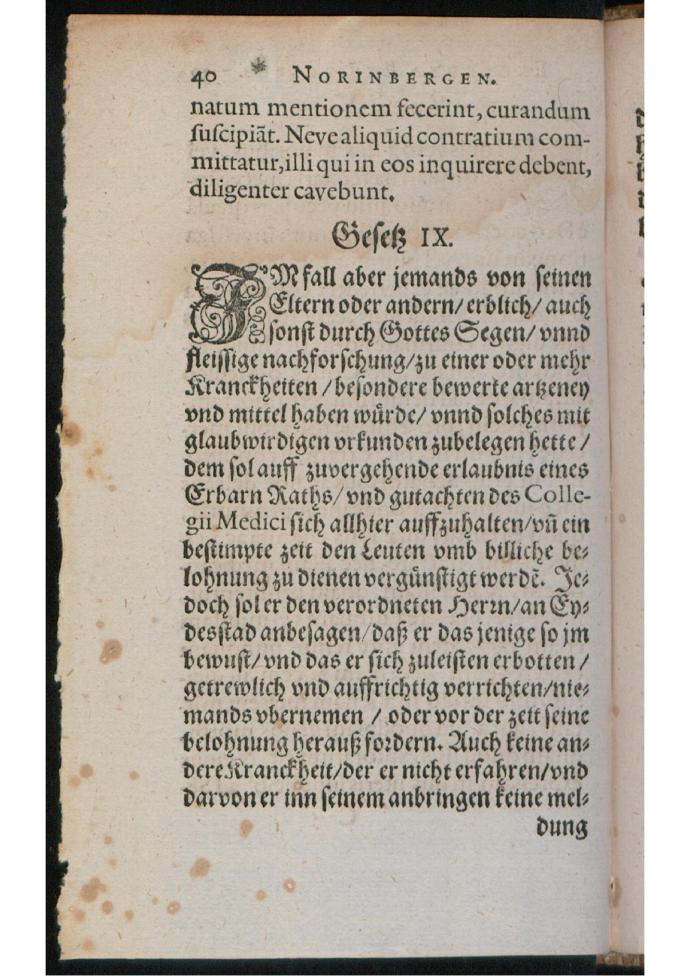 40 * NORINBERGEN.
natum mentionem fecerint, curandum
suscipiāt. Neve aliquid contratium com-
mittatur, illi qui in eos inquirere debent,
diligenter cavebunt.
Gesetz IX.
IM fall aber jemands von seinen
Eltern oder andern/ erblich/ auch
sonst durch Gottes Segen/ vnnd
fleissige nachforschung/ zu einer oder mehr
Kranckheiten / besondere bewerte artzeney
vnd mittel haben würde/ vnnd solches mit
glaubwirdigen vrkunden zubelegen hette /
dem sol auff zuvergehende erlaubnis eines
Erbarn Raths/ vnd gutachten des Colle-
gii Medici sich allhier auffzuhalten/ vn̄ ein
bestimpte zeit den Leuten vmb billiche be-
lohnung zu dienen vergünstigt werdē. Je-
doch sol er den verordneten Herrn/ an Ey-
desstad anbesagen/ daß er das jenige so jm
bewust/ vnd das er sich zuleisten erbotten /
getrewlich vnd auffrichtig verrichten/ nie-
mands vbernemen / oder vor der zeit seine
belohnung herauß fordern. Auch keine an-
dere Kranckheit/ der er nicht erfahren/ vnd
darvon er inn seinem anbringen keine mel-
dung